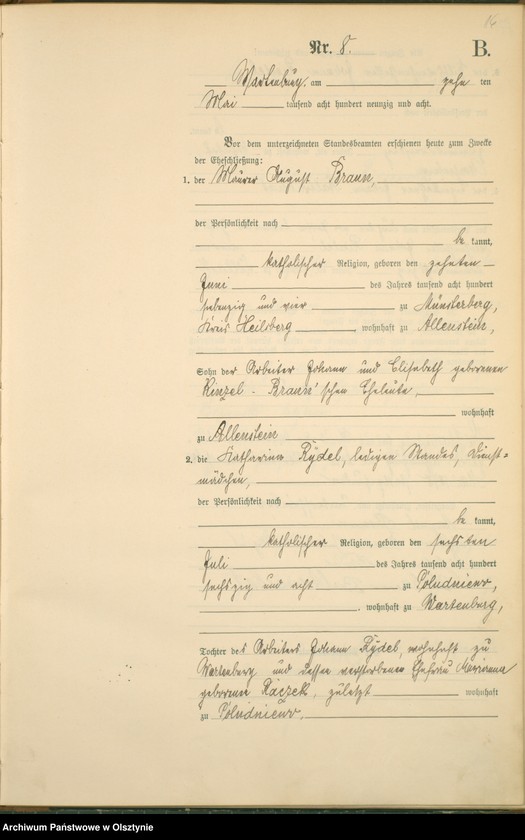 Nr. 8.
B.
Wartenburg, am zehn ten
Mai tausend acht hundert neunzig und acht.
Vor dem unterzeichneten Standesbeamten erschienen heute zum Zwecke
der Eheschließung:
1. der Maurer August Braun,
der Persönlichkeit nach
be kannt,
katholischer Religion, geboren den zehnten
Juni des Jahres tausend acht hundert
siebenzig und vier zu Münsterberg,
Kreis Heilsberg wohnhaft zu Allenstein,
Sohn der Arbeiter Johann und Elisabeth geborenen
Kinzel - Braun'schen Eheleute,
wohnhaft
zu Allenstein
2. die Katharina Rydel, ledigen Standes, Dienst=
mädchen,
der Persönlichkeit nach
be kannt,
katholischer Religion, geboren den sechsten
Juli des Jahres tausend acht hundert
sechszig und acht zu Poludniewo,
wohnhaft zu Wartenburg,
Tochter des Arbeiters Johann Rydel, wohnhaft zu
Wartenburg und dessen verstorbenen Ehefrau Marianna
geborene Raczek, zuletzt wohnhaft
zu Poludniewo,
Archiwum Państwowe w Olsztynie